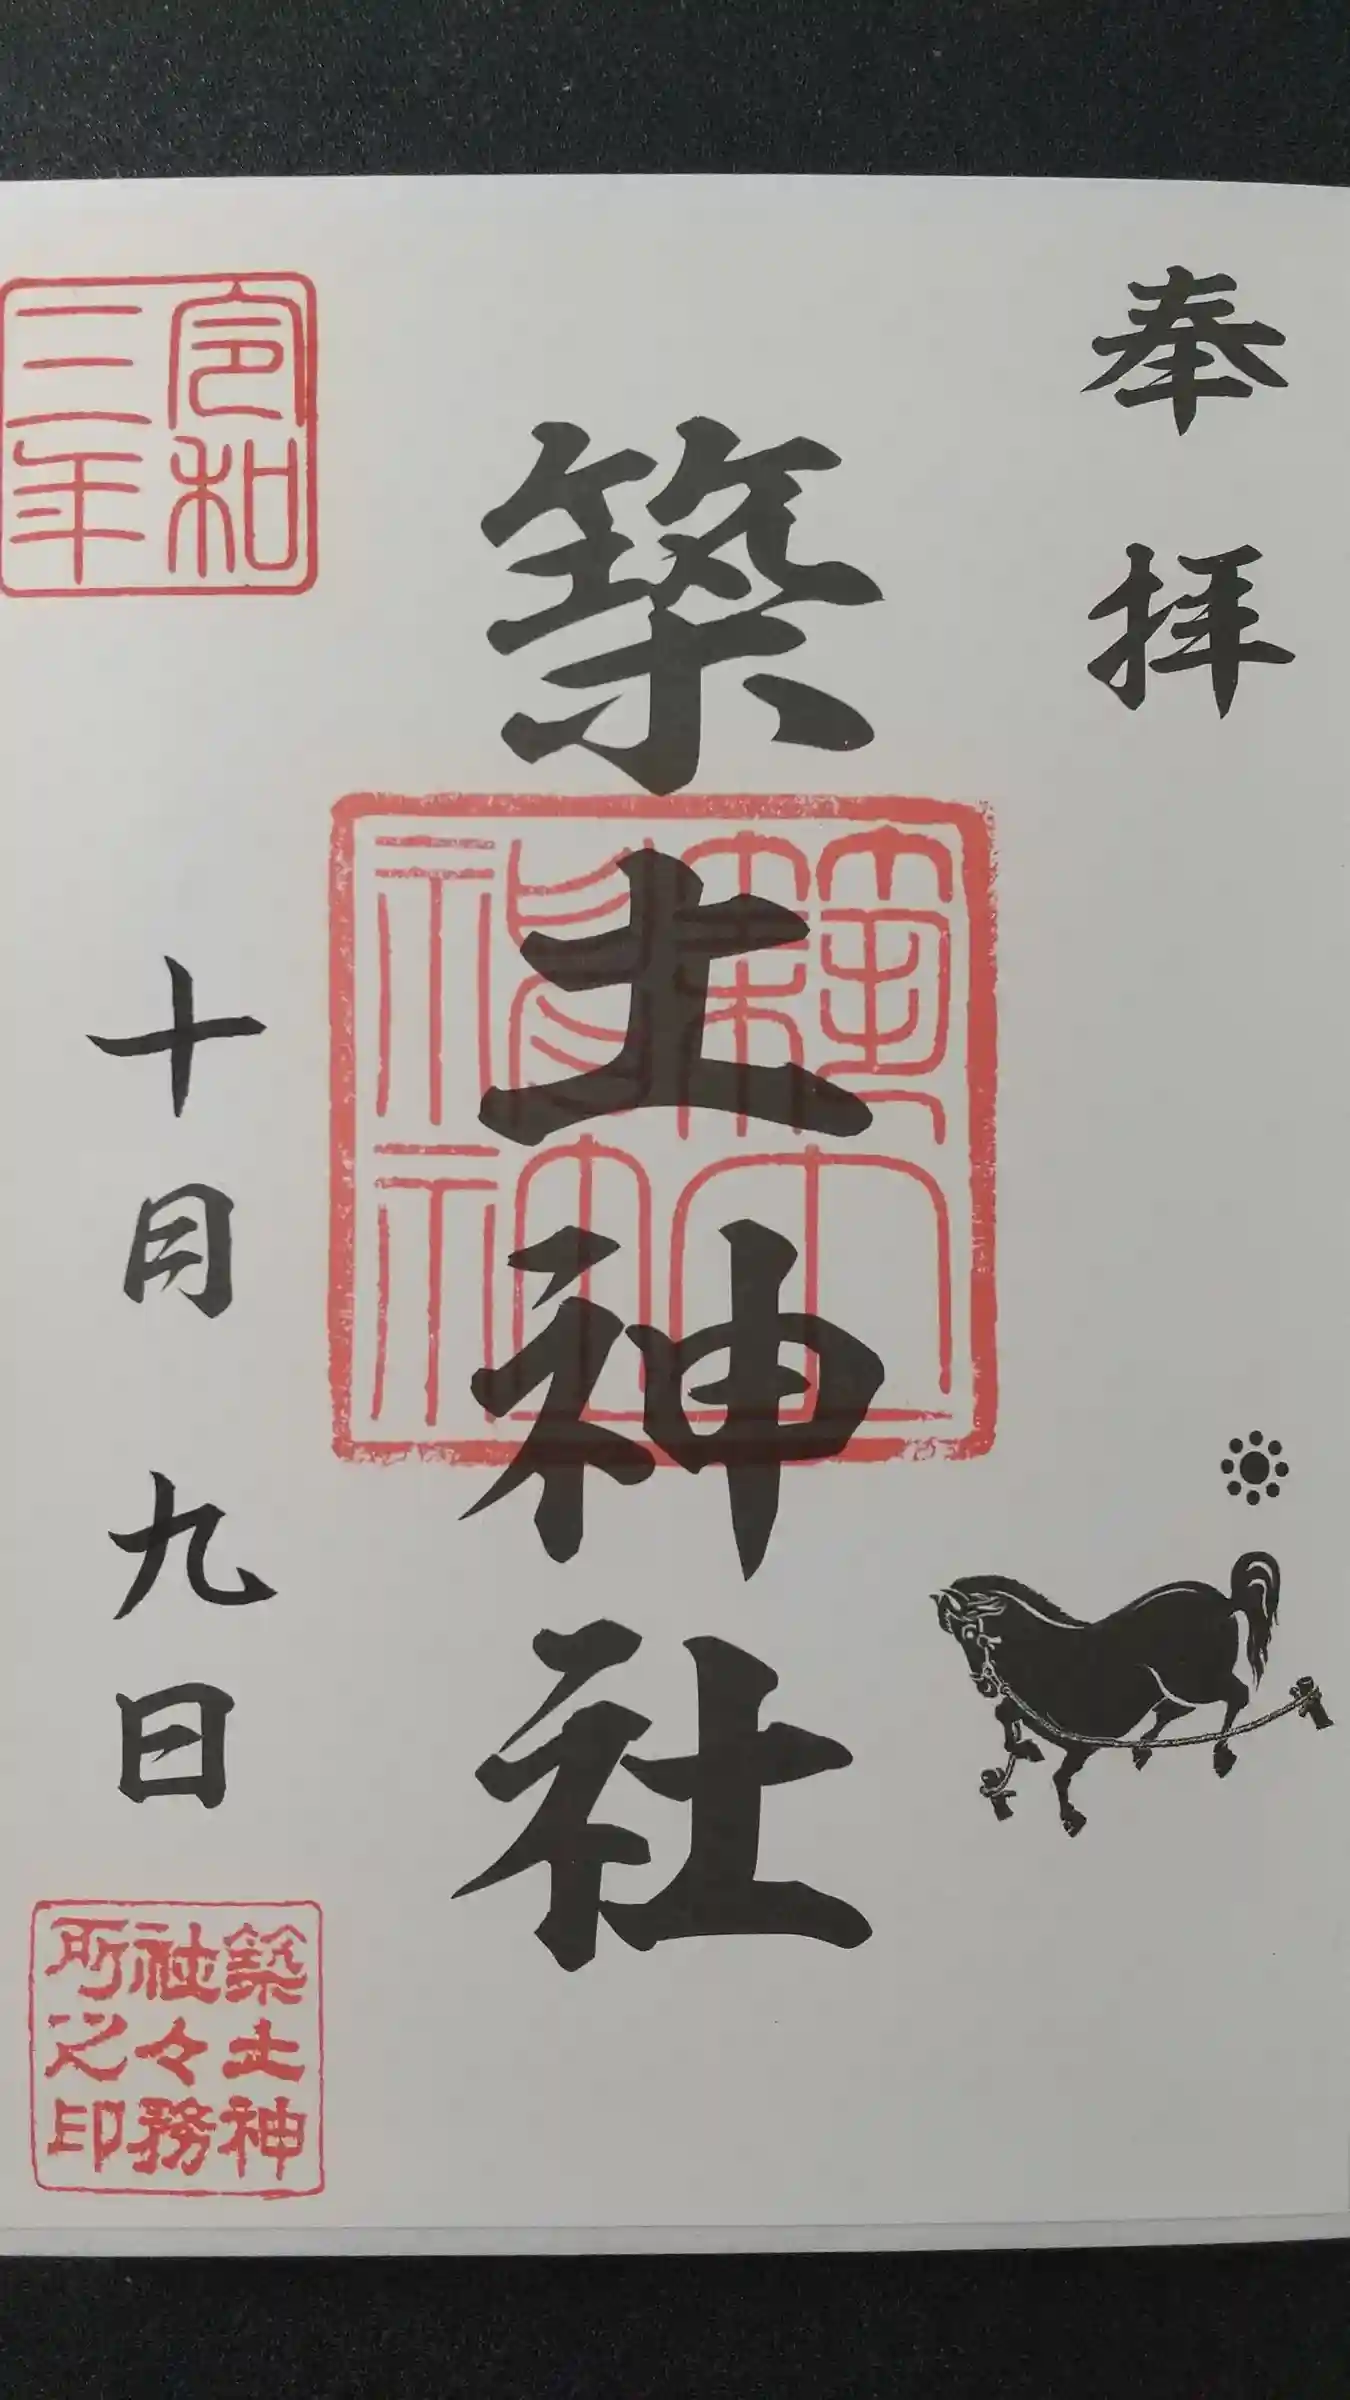 奉拝
築土神社
築土神社
令和三年
十月九日
築土神
社々務
所之印